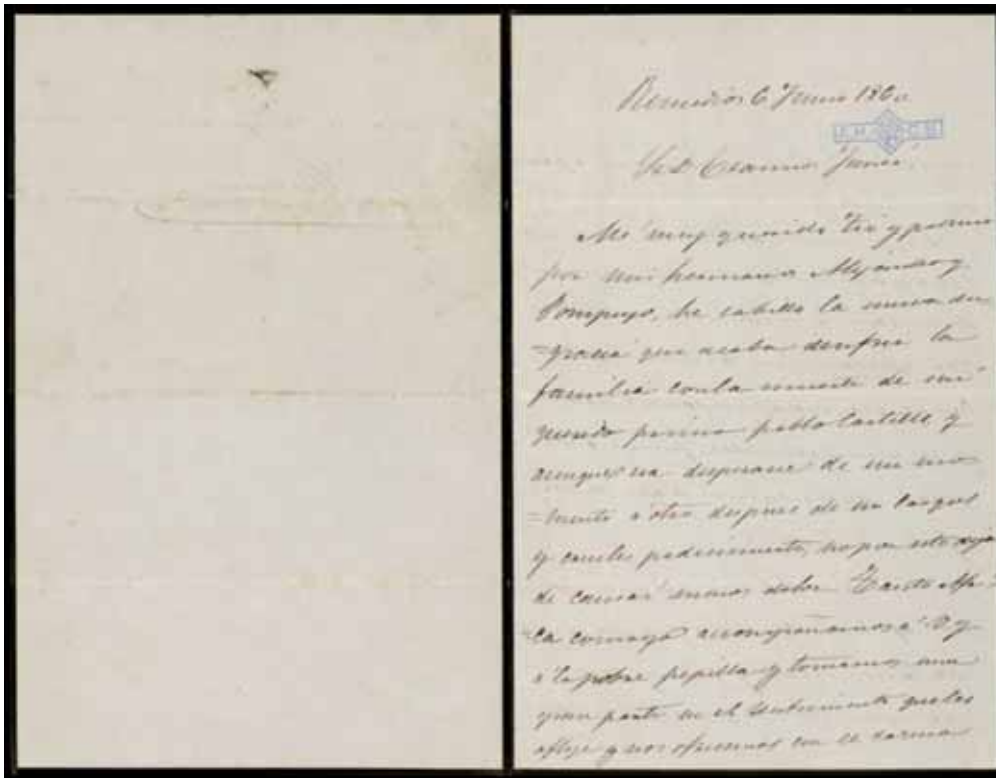 Remedios 6 Junio 186
Sr D
Mi muy querido tio y primo
por mi hermano Alejandro y
Pompeyo, he sabido la nueva des
=gracia que acaba de sufrir la
familia con la muerte de mi
querido primo pablo Castillo y
aunque era de esperarse de un mo
=mento a otro despues de un largo
y cruel padecimiento, no por esto deja
de causar menos dolor. Tanto
como yo acompañamos a V y
a la pobre pepilla y tomamos una
gran parte en el sentimiento que los
aflije y nos ofrecemos con